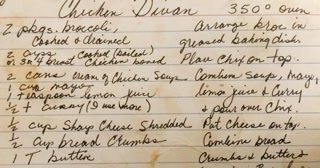 Chicken Divan 350° oven
2 pkgs. broccoli Arrange broc in
Cooked & drained greased baking dish.
2 cups Cooked (boiled)
or 3 n 4 breast Chicken boned Place chix on top.
2 cans Cream of Chicken Soup Combine Soup, mayo,
1 cup mayo lemon juice & curry
1 teaspoon lemon juice & pour over chix.
½ t curry (I use more)
½ cup Sharp Cheese Shredded Put Cheese on top.
½ cup bread Crumbs Combine bread
1 T butter Crumbs & butter